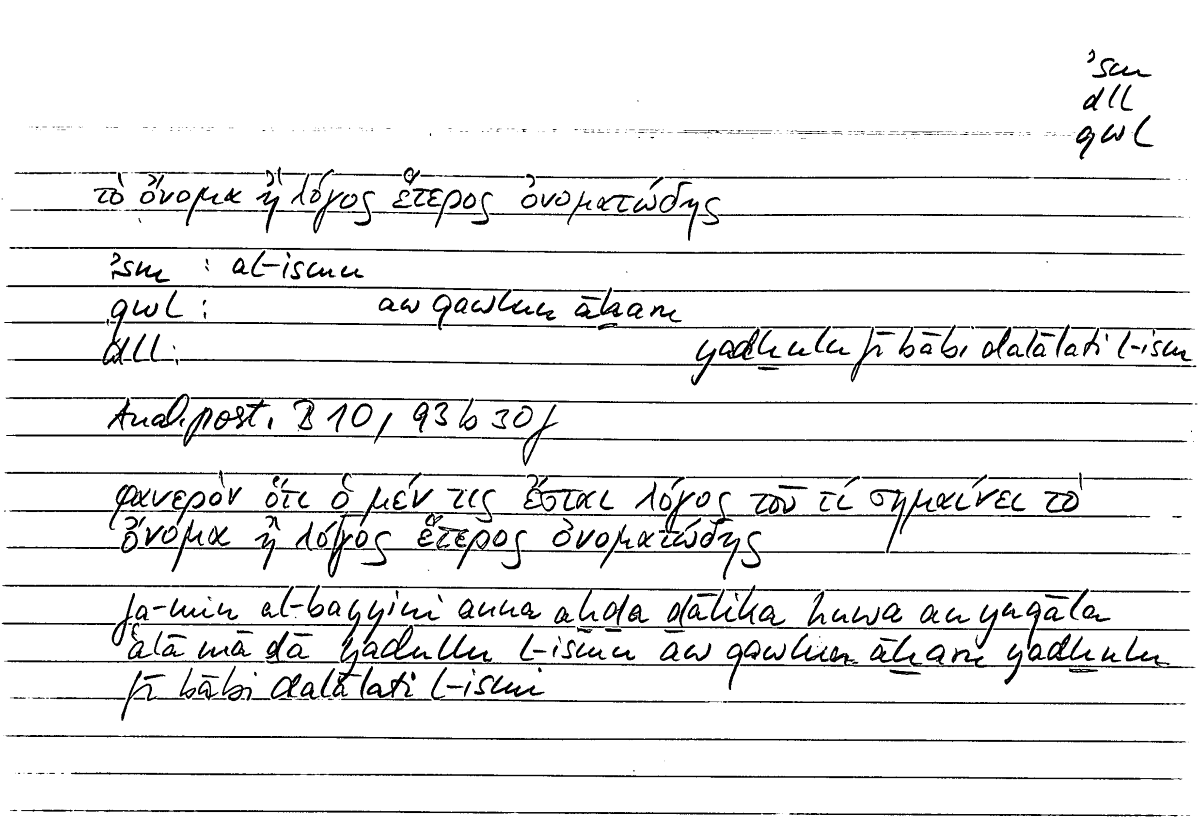 ʾsm
dll
qwl
τὸ ὄνομα ἢ λόγος ἕτερος ὀνοματώδης
ʾsm : al-ismu
qwl : aw qawlun āḫaru
dll : yadḫulu fī bābi dalālati l-ism
Anal. post. B 10, 93 b 30 f
φανερὸν ὅτι ὁ μέν τις ἔσται λόγος τοῦ τί σημαίνει τὸ
ὄνομα ἢ λόγος ἕτερος ὀνοματώδης
fa-min al-bayyini anna aḥda ḏālika huwa an yuqāla
ʿalā mā ḏā yadullu l-ismu aw qawlun āḫaru yadḫulu
fī bābi dalālati l-ismi